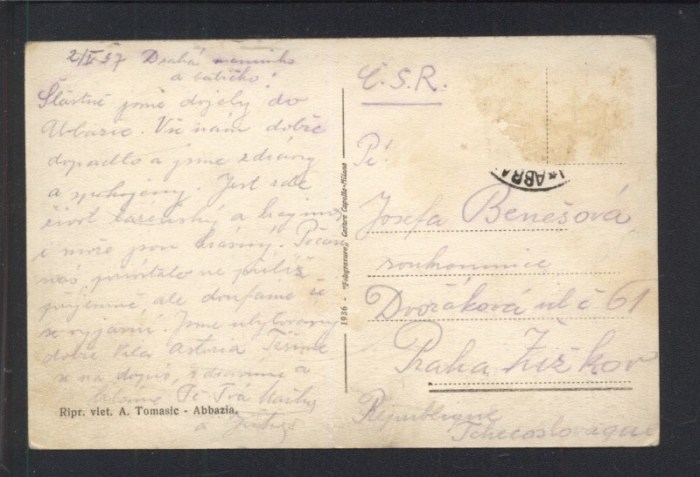 2/V 37 Drahá maminko
a babičko!
Šťastně jsme dojely do
Abbazie. Vše nám dobře
dopadlo a jsme zdrávy
a spokojeny. Jest zde
život lázeňský a
i moře jsou krásný. Počasí
nás přivítalo ne příliš
příjemně ale doufáme že
se vyjasní. Jsme ubytovány
dobře Vila Astoria Těšíme
se na dopis, zdravíme a
líbáme Tě Tvá
a
Ripr. viet. A. Tomasic - Abbazia.
1936 - Fotogravure Cesare Capello-Milano
Č.S.R.
ABBA
Pí
Josefa Benešová
soukromnice
Dvořáková ul č 61
Praha Žižkov
République
Tchecoslovaque